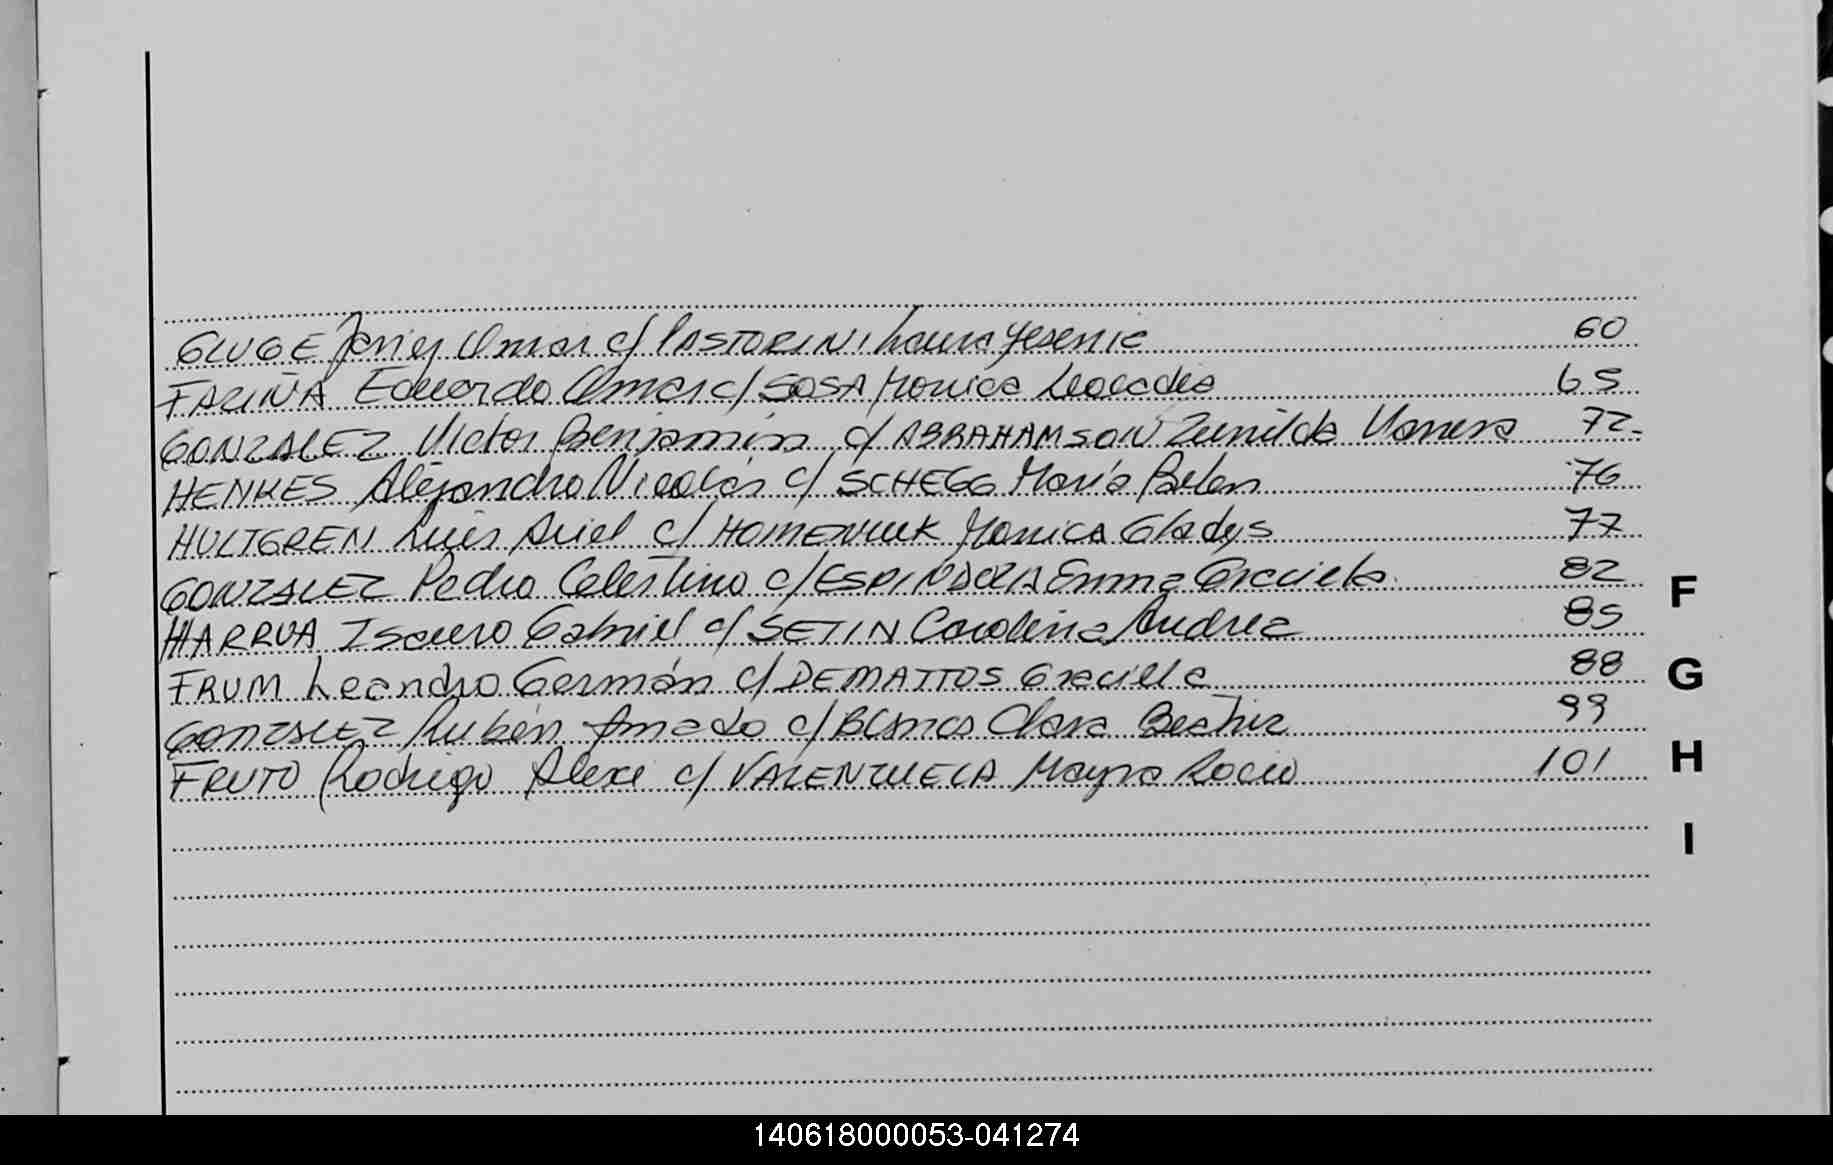 GLUGE Javier Omar c/ PASTORINI Laura Yesenia 60
FARIÑA Eduardo Omar c/ SOSA Monica Leocadia 65
GONZALEZ Victor Benjamin c/ ABRAHAMSON Zunilda 72-
HENKES Alejandro Nicolás c/ SCHEGG María Belen 76
HULTGREN Luis Ariel c/ HOMENIUK Monica Gladys 77
GONZALEZ Pedro Celestino c/ ESPINDOLA Emma Graciela 82
HARRUA Isauro Gabriel c/ SETIN Carolina Andrea 85
FRUM Leandro Germán c/ DEMATTOS Graciela 88
GONZALEZ Rubén Amado c/ Clara Beatriz 99
FRUTO Rodrigo Alexe c/ VALENZUELA Mayra Rocio 101
F
G
H
I
140618000053-041274